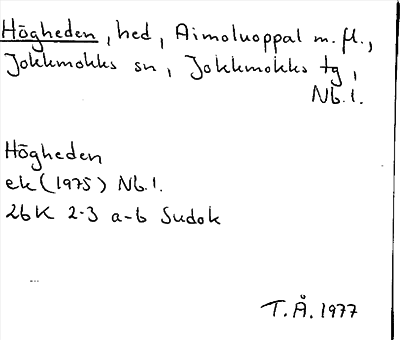 Högheden, hed, Aimoluoppal m. fl.,
Jokkmokks sn, Jokkmokks tg,
Nb. l.
Högheden
ek (1975) Nb. l.
26K 2-3 a-b Sudok
T.Å. 1977